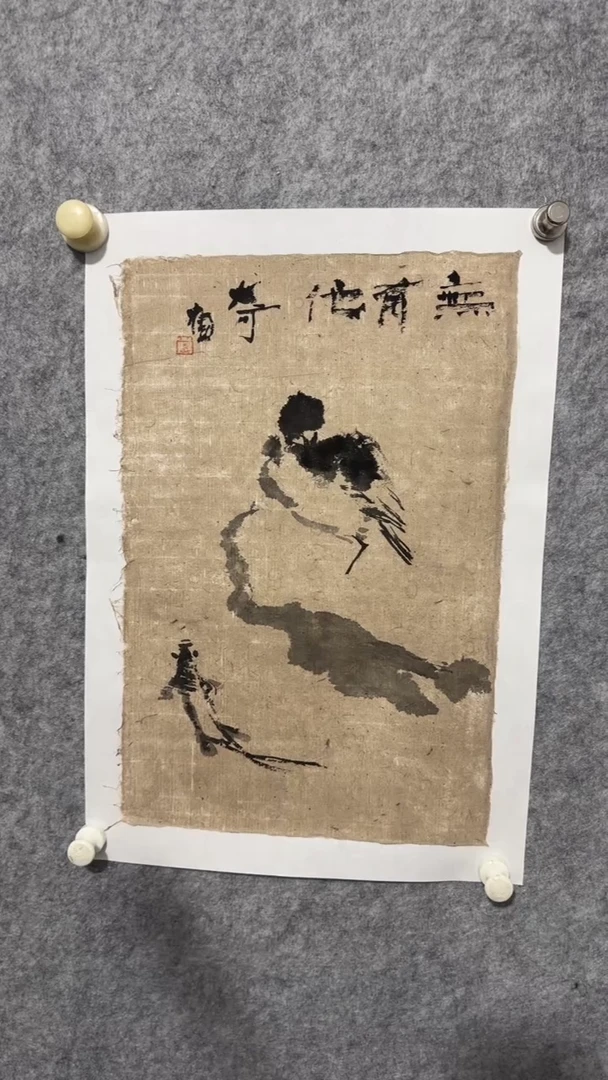 無有他奇